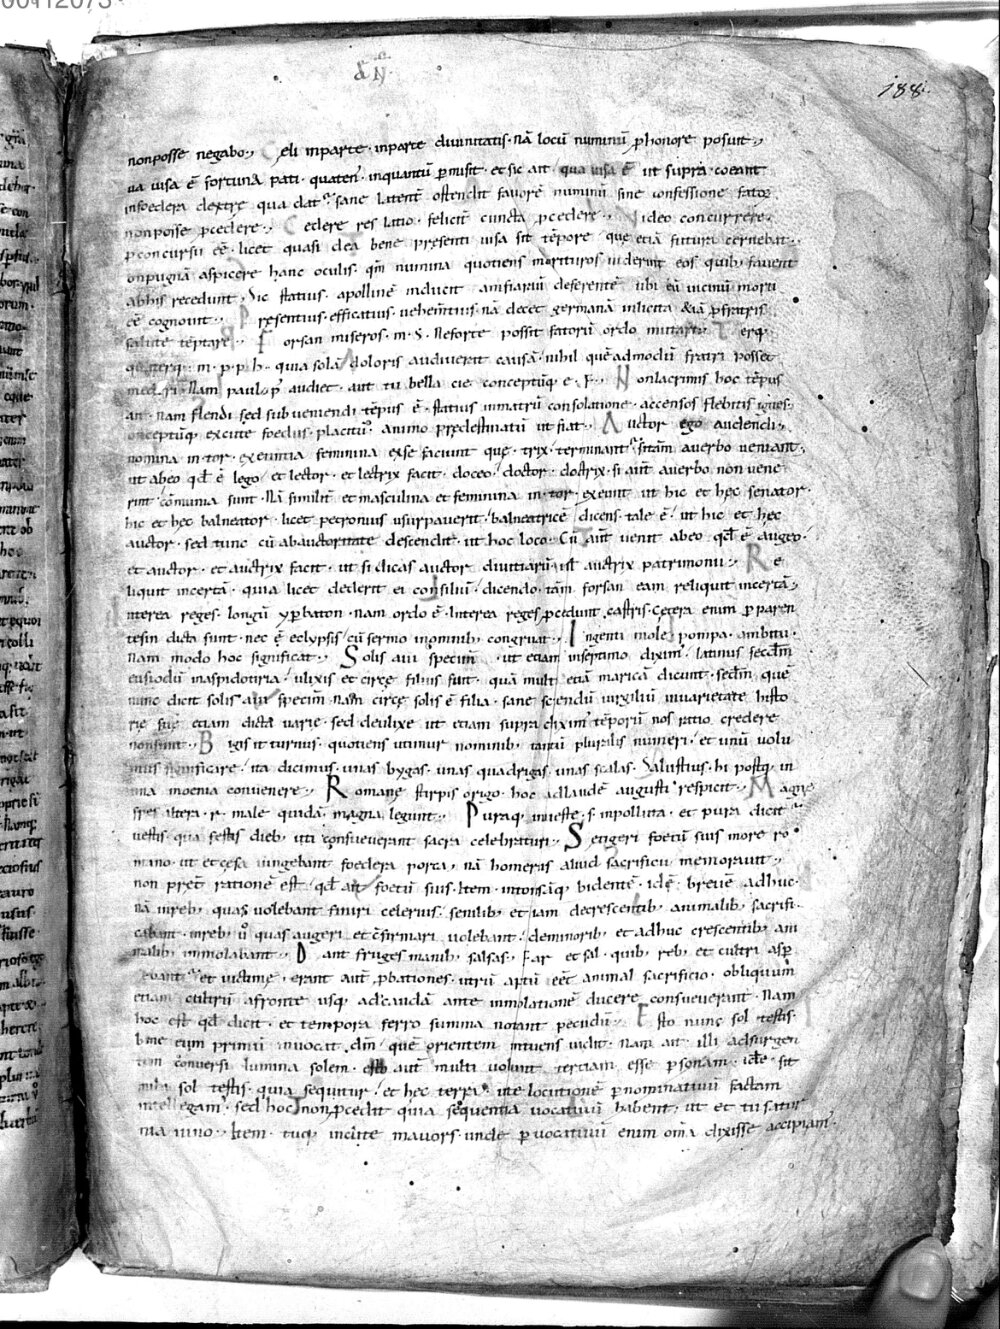 188
nonposse negabo., Celi inparte. inparte diuinitatis. nā locū numinū p̄ honore posuit.,
ua uisa ē fortuna pati. quaten'. inquantū p̄misit. et sic ait. qua uisa ē. ut supra. coeant
infoedera dextre qua dat'. sane latent' ostendit fauorē numinū sine confessione fator
nonposse pcedere., Cedere res latio. felicit' cuncta pcedere., ideo concurrere.
p concursū eē. licet quasi dea bene presenti uisa sit tēpore. que etiā futura cernebat.,
onpugnā aspicere hanc oculis. qm̄ numina quotiens morituros uiderint eos quib; fauent
abhis recedunt. Sic statius. apollinē inducit amfiaraū deserentē ubi eū uicinū morti
eē cognouit., Presentius. efficatius. uehem̄tius. nā decet germanā inlicita &iā p̄ fratris
salute tēptare., Forsan miseros. m. S. Neforte possit fatorū ordo mutari., Terq;
quaterq; m. p. p. h. quia solā doloris audiuerit causā. nihil quēadmodū fratri posset
Nam paul; p' audiet. aut tu bella cie. conceptūq; e. F. Nonlacrimis hoc tēpus
an. nam flendi sed subueniendi tēpus ē. statius inmatrū consolatione. accensos flebitis ignes.
conceptūq; excute foedus. placitū. animo predestinatū ut fiat., Auctor ego audendi.
nomina in.tor. exeuntia feminina exse faciunt que. trix. terminant'. si tam̄ auerbo ueniant.
ut abeo qd̄ ē lego/ et lector. et lectrix facit. doceo/ doctor. doctrix. si aūt auerbo non uene
rint cōmunia sunt. Nā similit' et masculina et feminina in.tor. exeunt ut hic et hęc senator.
hic et hęc balneator. licet petronius usurpauerit. balneatricē dicens. tale ē/ ut hic et hęc
auctor. sed tunc cū abauctoritate descendit. ut hoc loco. Cū aūt uenit abeo qd̄ ē augeo.
et auctor. et auctrix facit. ut si dicas auctor diuitiarū. ut auctrix patrimonii., Re
liquit incertā. quia licet dederit ei consiliū. dicendo. tām forsan eam reliquit incertā.,
nterea reges. longū yp̄baton. nam ordo ē. Interea reges pcedunt castris. Cetera enim p̄ paren
tesin dicta sunt. nec ē eclypsis/ cū sermo inominib; congruat., Ingenti mole. pompa. ambitu.
Nam modo hoc significat., Solis aui specim̄. ut etiam inseptimo diximᵘ. latinus secdm̄
/ ulixis et circę filius fuit. quā mult etiā maricā dicunt. secdm̄ quē
nunc dicit solis aui specim̄ nam circę solis ē filia. sane sciendū uirgiliū inuarietate histo
rię suę etiam dicta uarie. sed deulixe ut etiam supra diximᵘ tēporū nos ratio credere
nonsinit. Bigis it turnus. quotiens utimur nominib; tantū pluralis numeri. et unū uolu
mus significare. ita dicimus. unas bygas. unas quadrigas. unas scalas. Salustius. hi postq; in
una moenia conuenere., Romane stirpis origo. hoc adlaudē augusti respicit., Magne
spes altera. r. male quidā. magna legunt., Puraq; inueste. s. inpolluta. et pura dicit'
uestis qua festis dieb; uti consueuerant sacra celebraturi., Setigeri foetū suis more ro
mano. ut et cęsa iungebant foedera porca. nā homerus aliud sacrificii memorauit.,
non preē rationē est. qd̄ ait foetū suis. Item. intonsāq; bidentē. idē. breuē adhuc.
nā inreb; quas uolebant finiri celerius. senilib; et iam decrescentib; animalib; sacrifi
cabant. inreb; u° quas augeri et cōfirmari uolebant. deminorib; et adhuc crescentib; ani
malib; immolabant., Dant fruges manib; salsas. Far et sal. quib; reb; et cultri asp
gebant' et uictimę. erant aut̄ pbationes. utrū aptū eēt animal sacrificio. obliquum
etiam cultrū afronte usq; adcaudā ante immolationē ducere consueuerant. Nam
hoc est qd̄ dicit. et tempora ferro summa notant pecudū., Esto nunc sol testis.
bene eum primū inuocat dm̄/ quē orientem intuens uidit. nam ait. illi adsurgen
tem conuersi lumina solem. aut multi uolunt tertiam esse p̄sonam. ide. sit
mihi sol testis. quia sequitur/ et hęc terra. ut e locutionē p̄ nominatiuū factam
intellegam'. sed hoc non pcedit quia sequentia uocatiuū habent. ut et tu satur
nia iuno., Item. tuq; inclite mauors. unde p̄ uocatiuū enim om̄a dixisse accipiam'.